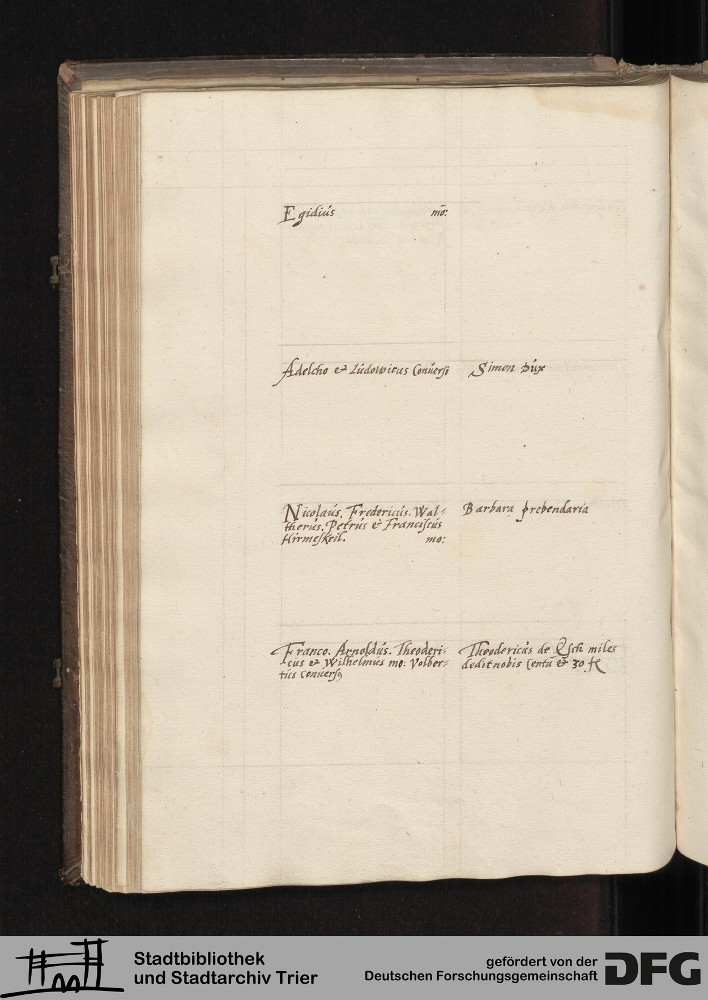 Egidius mo:
Adelcho et Ludowicus Conversi
Simon Dux
Nicolaus. Fredericus. Wal-
therus. Petrus et Franciscus
Hirmeskeil. mo:
Barbara prebendaria
Franco. Arnoldus. Theoderi-
cus et Wilhelmus mo: Volber-
tus convers9
Theodericus de Esch miles
dedit nobis Centu et 30 fl
Stadtbibliothek
und Stadtarchiv Trier
gefördert von der
Deutschen Forschungsgemeinschaft
DFG